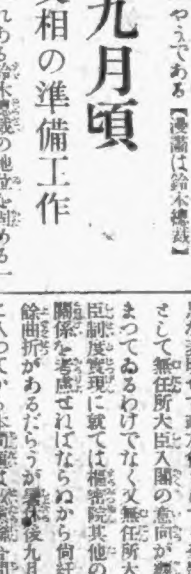 やうである【漫畫は鈴木總裁】
九月頃
相の準備工作
れある鈴木總裁の地位を固める一
さして無任所大臣入閣の意向が
まつてゐるわけでなく又無任所大
臣制度實現に就ては樞密院其他の
關係を考慮せねばならぬから尙
餘曲折があるだらうが 後九月